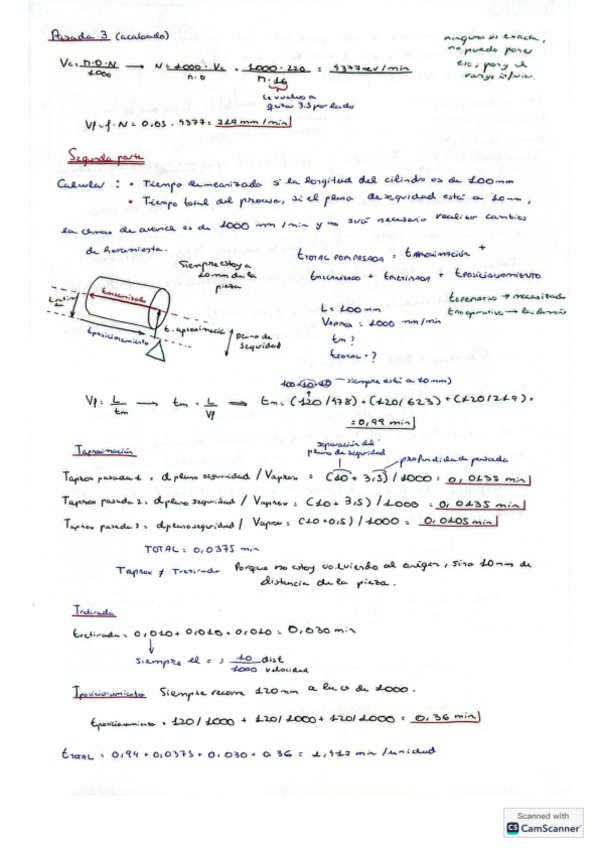 Pasada 3 (acabado)
ninguna es exacta,
no puedo poner
eso, pongo el
rango inferior.
Vc = π·D·N / 1000 → N = 1000·Vc / π·D = 1000·220 / π·16 = 4377 rev/min
Le vuelvo a
quitar 3.5 por lado
Vf = f·N = 0,05 · 4377 = 219 mm/min
Segunda parte
Calcular : • Tiempo de mecanizado si la longitud del cilindro es de 100 mm
• Tiempo total del proceso, si el plano de seguridad está a 10 mm,
la de avance es de 1000 mm/min y no será necesario realizar cambios
de herramienta.
Siempre estoy a
10 mm de la
pieza
t mecanizado
t. aproximació
t posicionamiento
Plano de
seguridad
t TOTAL POR PASADA = t APROXIMACIÓN +
t MECANIZADO + t RETIRADA + t POSICIONAMIENTO
t OPERATIVO → mecanizado
t no operativo → los demás
L = 100 mm
V aprox = 1000 mm/min
tm ?
t TOTAL = ?
100+10+10 — siempre está a 10 mm)
Vf = L / tm → tm = L / Vf ⇒ tm = (120/478) + (120/623) + (120/219) =
= 0,99 min
Taproximación
separación del
plano de seguridad
profundidad de pasada
Taprox pasada 1 = d plano seguridad / Vaprox = (10 + 3,5) / 1000 = 0,0135 min
Taprox pasada 2 = d plano seguridad / Vaprox = (10 + 3,5) / 1000 = 0,0135 min
Taprox pasada 3 = d plano seguridad / Vaprox = (10 + 0,5) / 1000 = 0,0105 min
TOTAL = 0,0375 min
Taprox ≠ Tretirada Porque no estoy volviendo al origen, sino 10 mm de
distancia de la pieza.
Tretirada
tretirada = 0,010 + 0,010 + 0,010 = 0,030 min
siempre el = ; 10 dist / 1000 velocidad
Tposicionamiento Siempre recorre 120 mm a la v de 1000.
tposicionamiento = 120/1000 + 120/1000 + 120/1000 = 0,36 min
t TOTAL = 0,99 + 0,0375 + 0,030 + 0.36 = 1,417 min/unidad
Scanned with
CS CamScanner